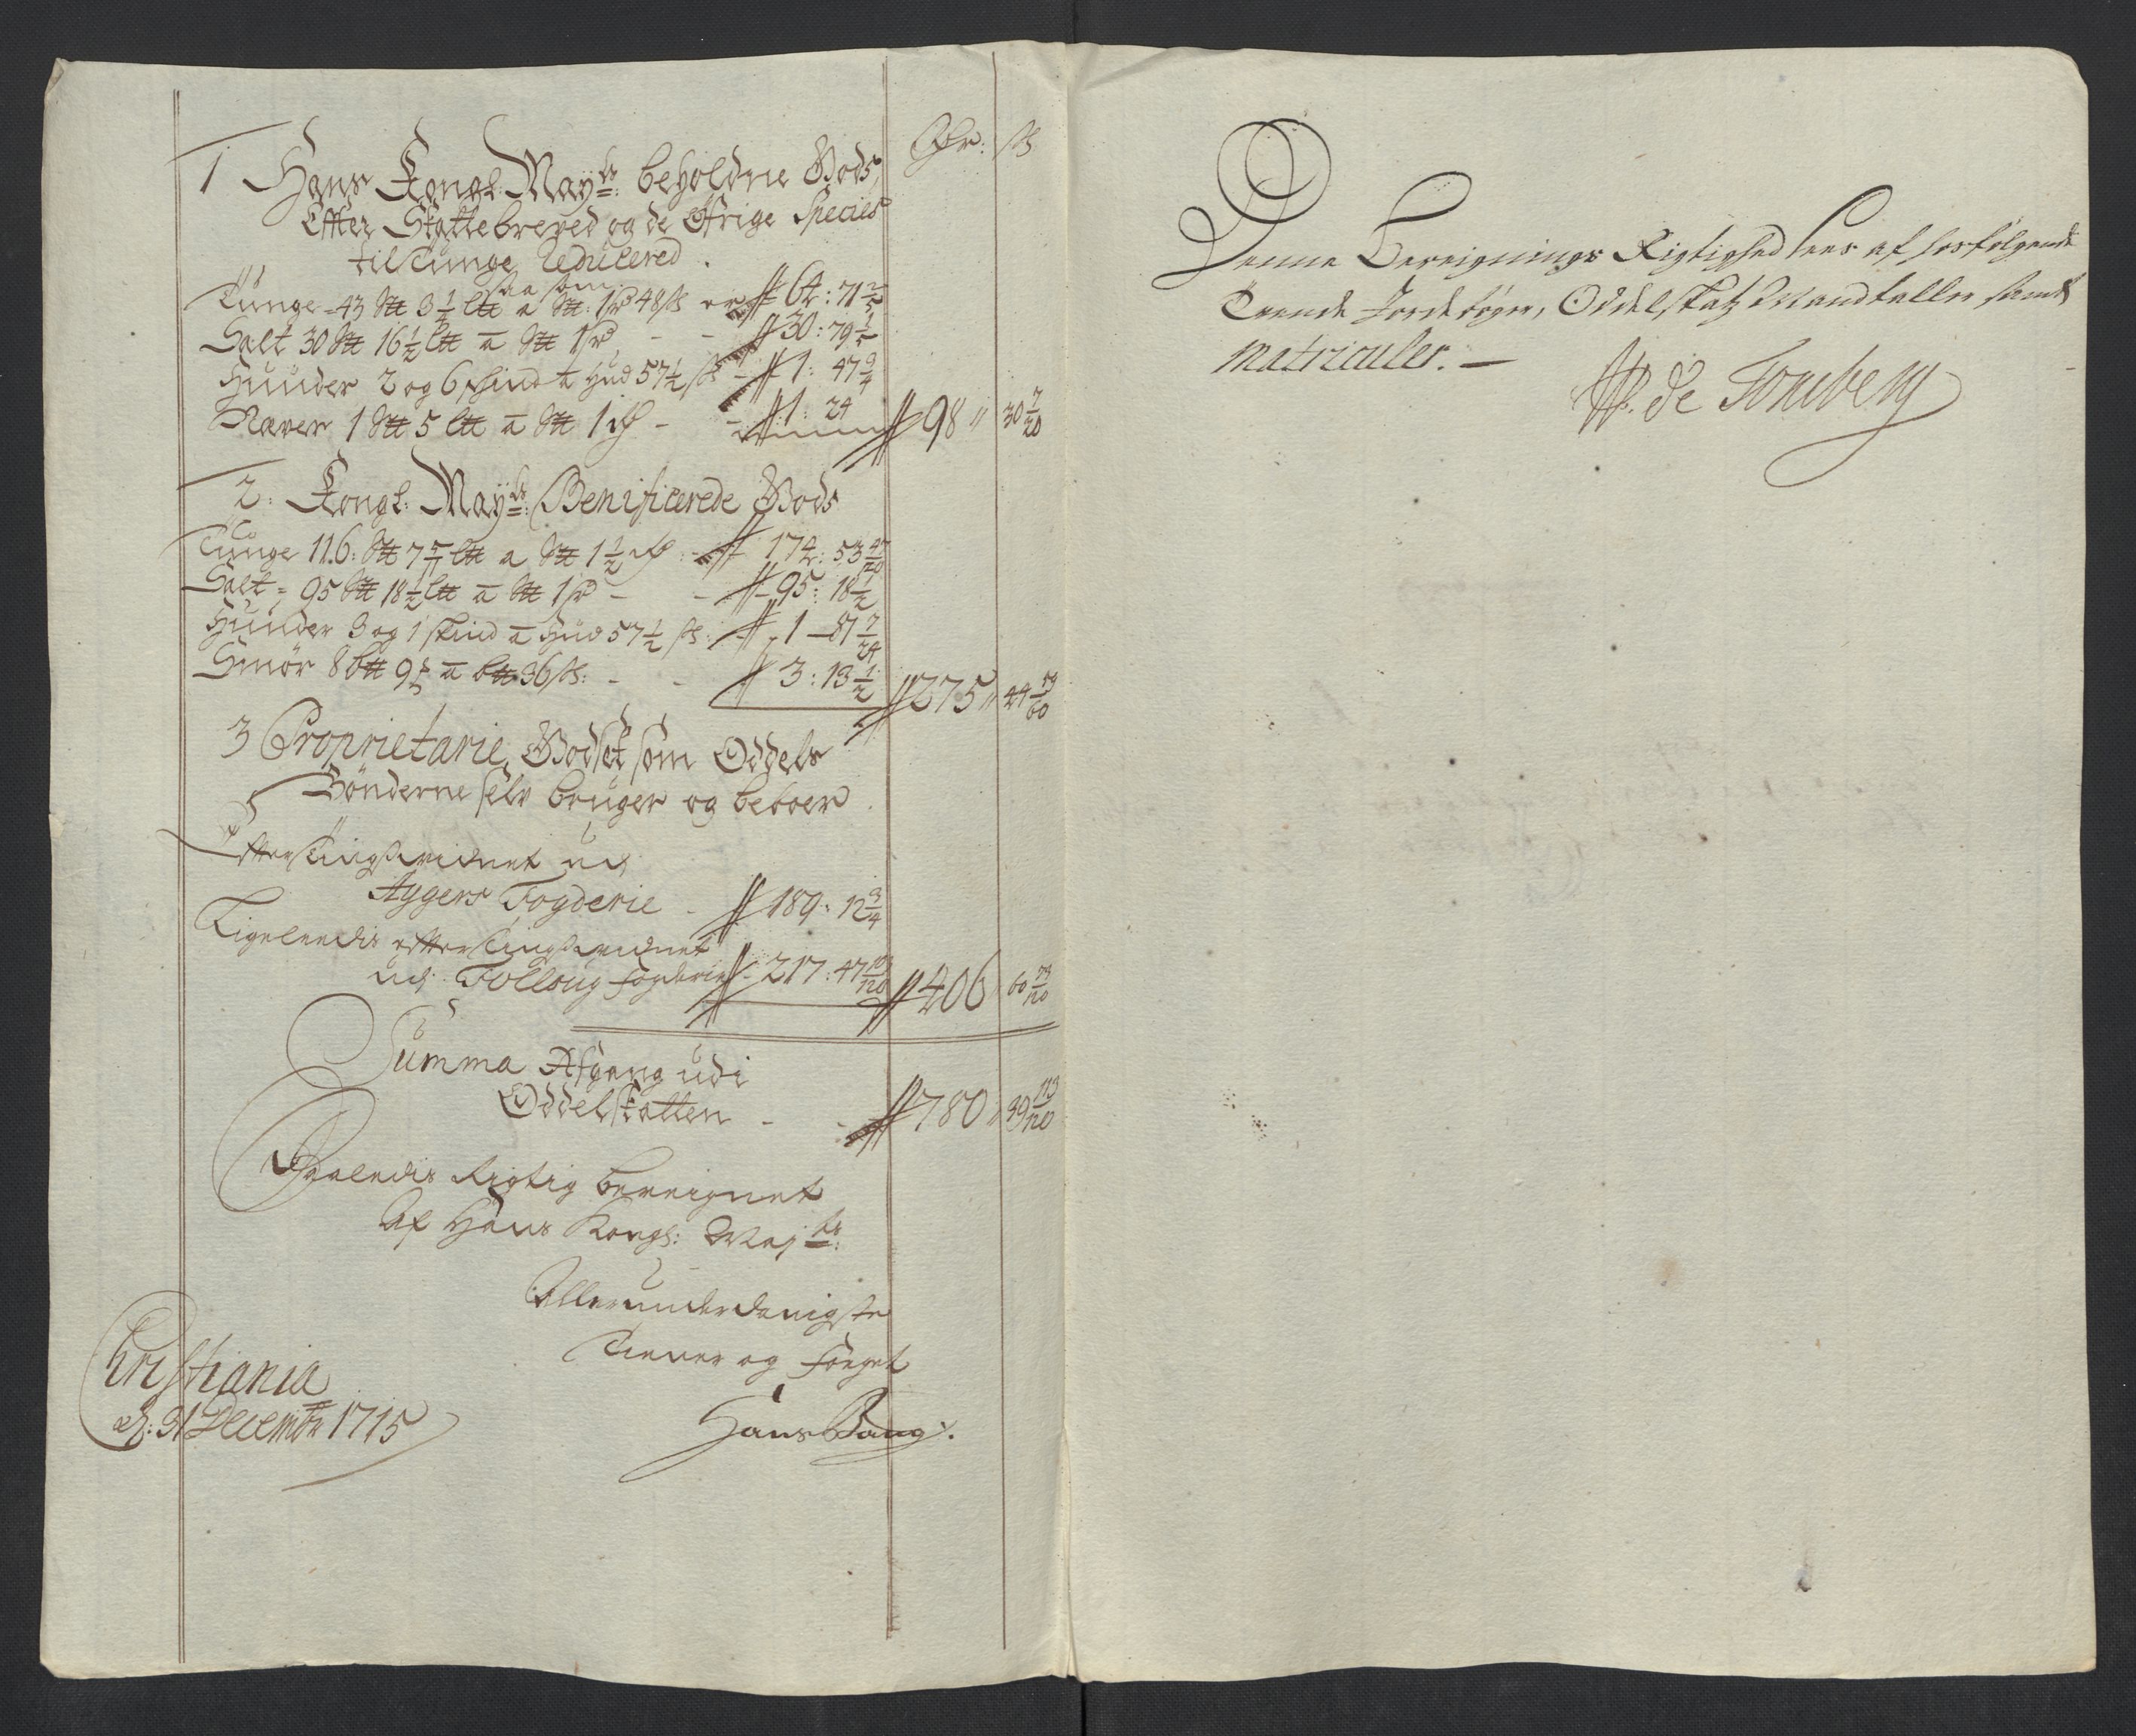 Rdr: ß
1 Hans Kongl: Mayts: beholdne Gods,
Effter Skattebreved og de Øfrige Species
til Tunge Reducered.
saa som
Tunge 43 S℔ 3½ L℔ a S℔: 1 rd 48 ß er 64: 71 2/5
Salt 30 S℔ 16½ L℔ a S℔ 1 rd - - 30: 79 1/5
Huuder 2 og 6 skind a Hud 57½ ß - 1: 47 3/4
Næver 1 S℔ 5 L℔ a S℔ 1 rd - - 1: 24
98 " 30 7/20
2: Kongl: Mayts: Benificerede Gods
Tunge 116: S℔ 7 L℔ a S℔ 1½ rd: - 174: 53 47/120
Salt = 95 S℔ 18½ L℔ a S℔ 1 rd - - 95: 18½
Huuder 3 og 1 skind a Hud 57½ ß: - 1 - 87 7/24
Smør 8 b℔ 9 a b℔ 36 ß: - - 3: 13½
275 " 44 59/60
3 Proprietarie Godset som Oddels
Bønderne selv bruger og beboer.
Effter Tingsvidnet udj
Aggers Fogderie - 189: 12 3/4
Ligeledis effter Tingsvidnet
udj Folloug Fogderie - 217: 47 103/120
406 60 73/120
Summa Afgang udi
Oddelskatten - - 780 " 39 113/120
Saaledis Rigtig bereignet
Af Hans Kongl: Majts:
Allerunderdanigste
Tiener og Foeget
Christiania
d: 31 Decembr 1715
Hans Bang.
Denne Bereignings Rigtighed sees af hosfølgende
Trende Jordebøger, Oddelskatz Mandtaller samt
Matriculer. -
W. de Tonsberg